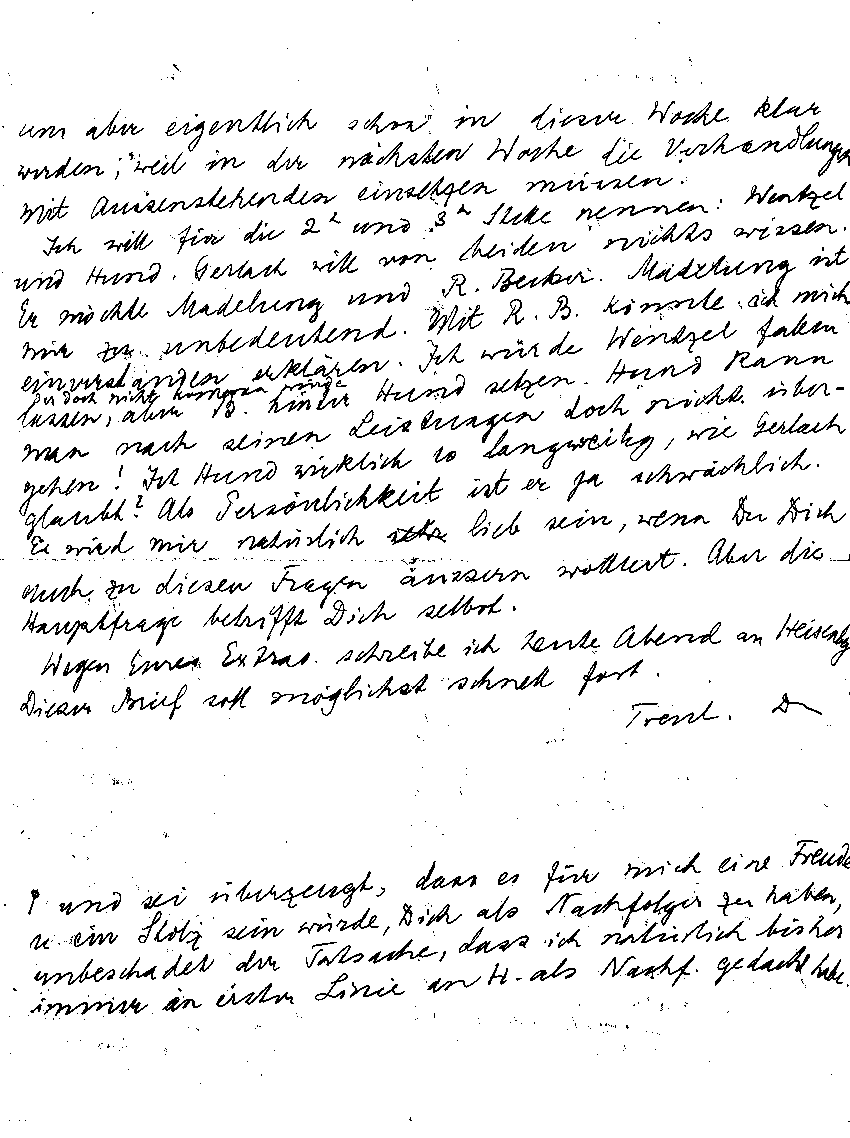 uns aber eigentlich schon in dieser Woche klar
werden, weil in der nächsten Woche die Verhandlungen
mit Aussenstehenden einsetzen müssen.
Ich will für die 2te und 3te Stelle nennen: Wentzel
und Hund. Gerlach will von beiden nichts wissen.
Er möchte Madelung und R. Becker. Madelung ist
mir zu unbedeutend. Mit R. B. könnte ich mich
einverstanden erklären. Ich würde Wentzel fallen
der doch nicht kommen würde
lassen, aber B. hinter Hund setzen. Hund kann
man nach seinen Leistungen doch nicht über-
gehen! Ist Hund wirklich so langweilig, wie Gerlach
glaubt? Als Persönlichkeit ist er ja schwächlich.
Es wird mir natürlich sehr lieb sein, wenn Du Dich
auch zu diesen Fragen äussern wolltest. Aber die
Hauptfrage betrifft Dich selbst.
Wegen Eures Extrao. schreibe ich heute Abend an Heisenbg
Dieser Brief soll möglichst schnell fort.
und sei überzeugt, dass es für mich eine Freude
u ein Stolz sein würde, Dich als Nachfolger zu haben,
unbeschadet der Tatsache, dass ich natürlich bisher
immer in erster Linie an H. als Nachf. gedacht habe.